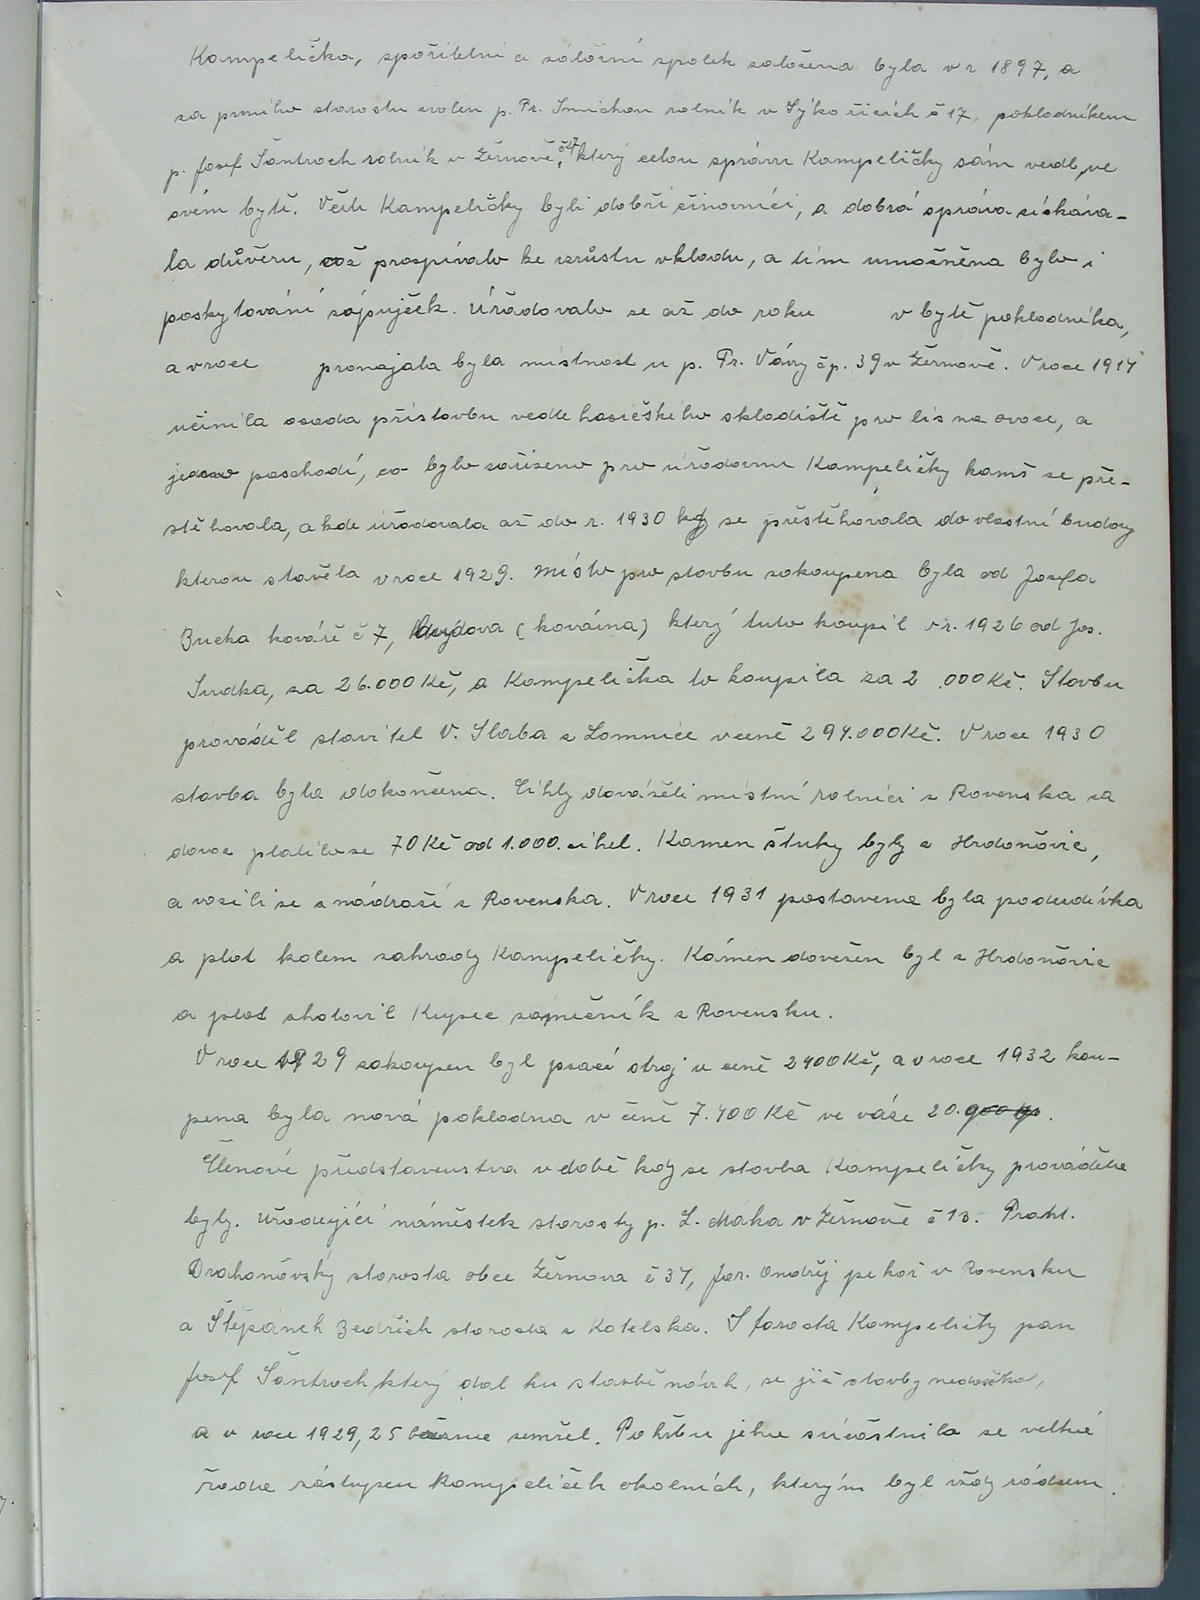 Kampelička, spořitelní a záložní spolek založena byla v r 1897, a
za prvního starostu zvolen p. Fr. Smíchou rolník v Sýkořicích č 17, pokladníkem
p. Josef Šantroch rolník v Žernově, č 7 který celou správu Kampeličky sám vedl, ve
svém bytě. Vždy Kampeličky byli dobří činovníci, a dobrá správa získáva-
la důvěru, což prospívalo ke vzrůstu vkladu, a tím umožněna bylo i
poskytování zápujček. Úřadovalo se až do roku v bytě pokladníka,
a v roce pronajata byla místnost u p. Fr. Vávry čp. 39 v Žernově. V roce 1914
učinila osada přístavbu vedle hasičského skladiště pro lis na ovoce, a
jedno poschodí, co bylo zařízeno pro úřadovnu Kampeličky kamž se pře-
stěhovala, a kde úřadovala až do r. 1930 kdy se přestěhovala do vlastní budovy
kterou stavěla v roce 1929. Místo pro stavbu zakoupena byla od Josefa
Bucka kováře č 7, budova (kovárna) který tuto koupil v r. 1926 od Jos.
Sudka, za 26.000 Kč, a Kampelička to koupila za 2 .000 Kč. Stavbu
prováděl stavitel V. Slaba z Lomnice v ceně 294.000 Kč. V roce 1930
stavba byla dokončena. Cihly dováželi místní rolníci z Rovenska za
dovoz platilo se 70 Kč od 1.000. cihel. Kamen štuky byly z Hrdoňovic,
a vozili se z nádraží z Rovenska. V roce 1931 postavena byla podezdívka
a plot kolem zahrady Kampeličky. Kámen dovežen byl z Hrdoňovic
a plot zhotovil Kupec zámečník z Rovensku.
V roce 1929 zakoupen byl psací stroj v ceně 2400 Kč, a v roce 1932 kou-
pena byla nová pokladna v ceně 7.400 Kč ve váze 20.900 kg.
Členové představenstva v době kdy se stavba Kampeličky prováděla
byly. Úřadující náměstek starosty p. L. Máka v Žernově č 13. Frant.
Drahoňovský starosta obce Žernova č 37, Jar. Ondřej pekař v Rovensku
a Štěpánek Bedřich starosta z Kotelska. Starosta Kampeličky pan
Josef Šantroch, který dal ku stavbě návrh, se již stavby nedočkal,
a v roce 1929, 25 března zemřel. Pohřbu jeho súčastnila se velká
řada zástupcu Kampeliček okolních, kterým byl vždy rádcem.